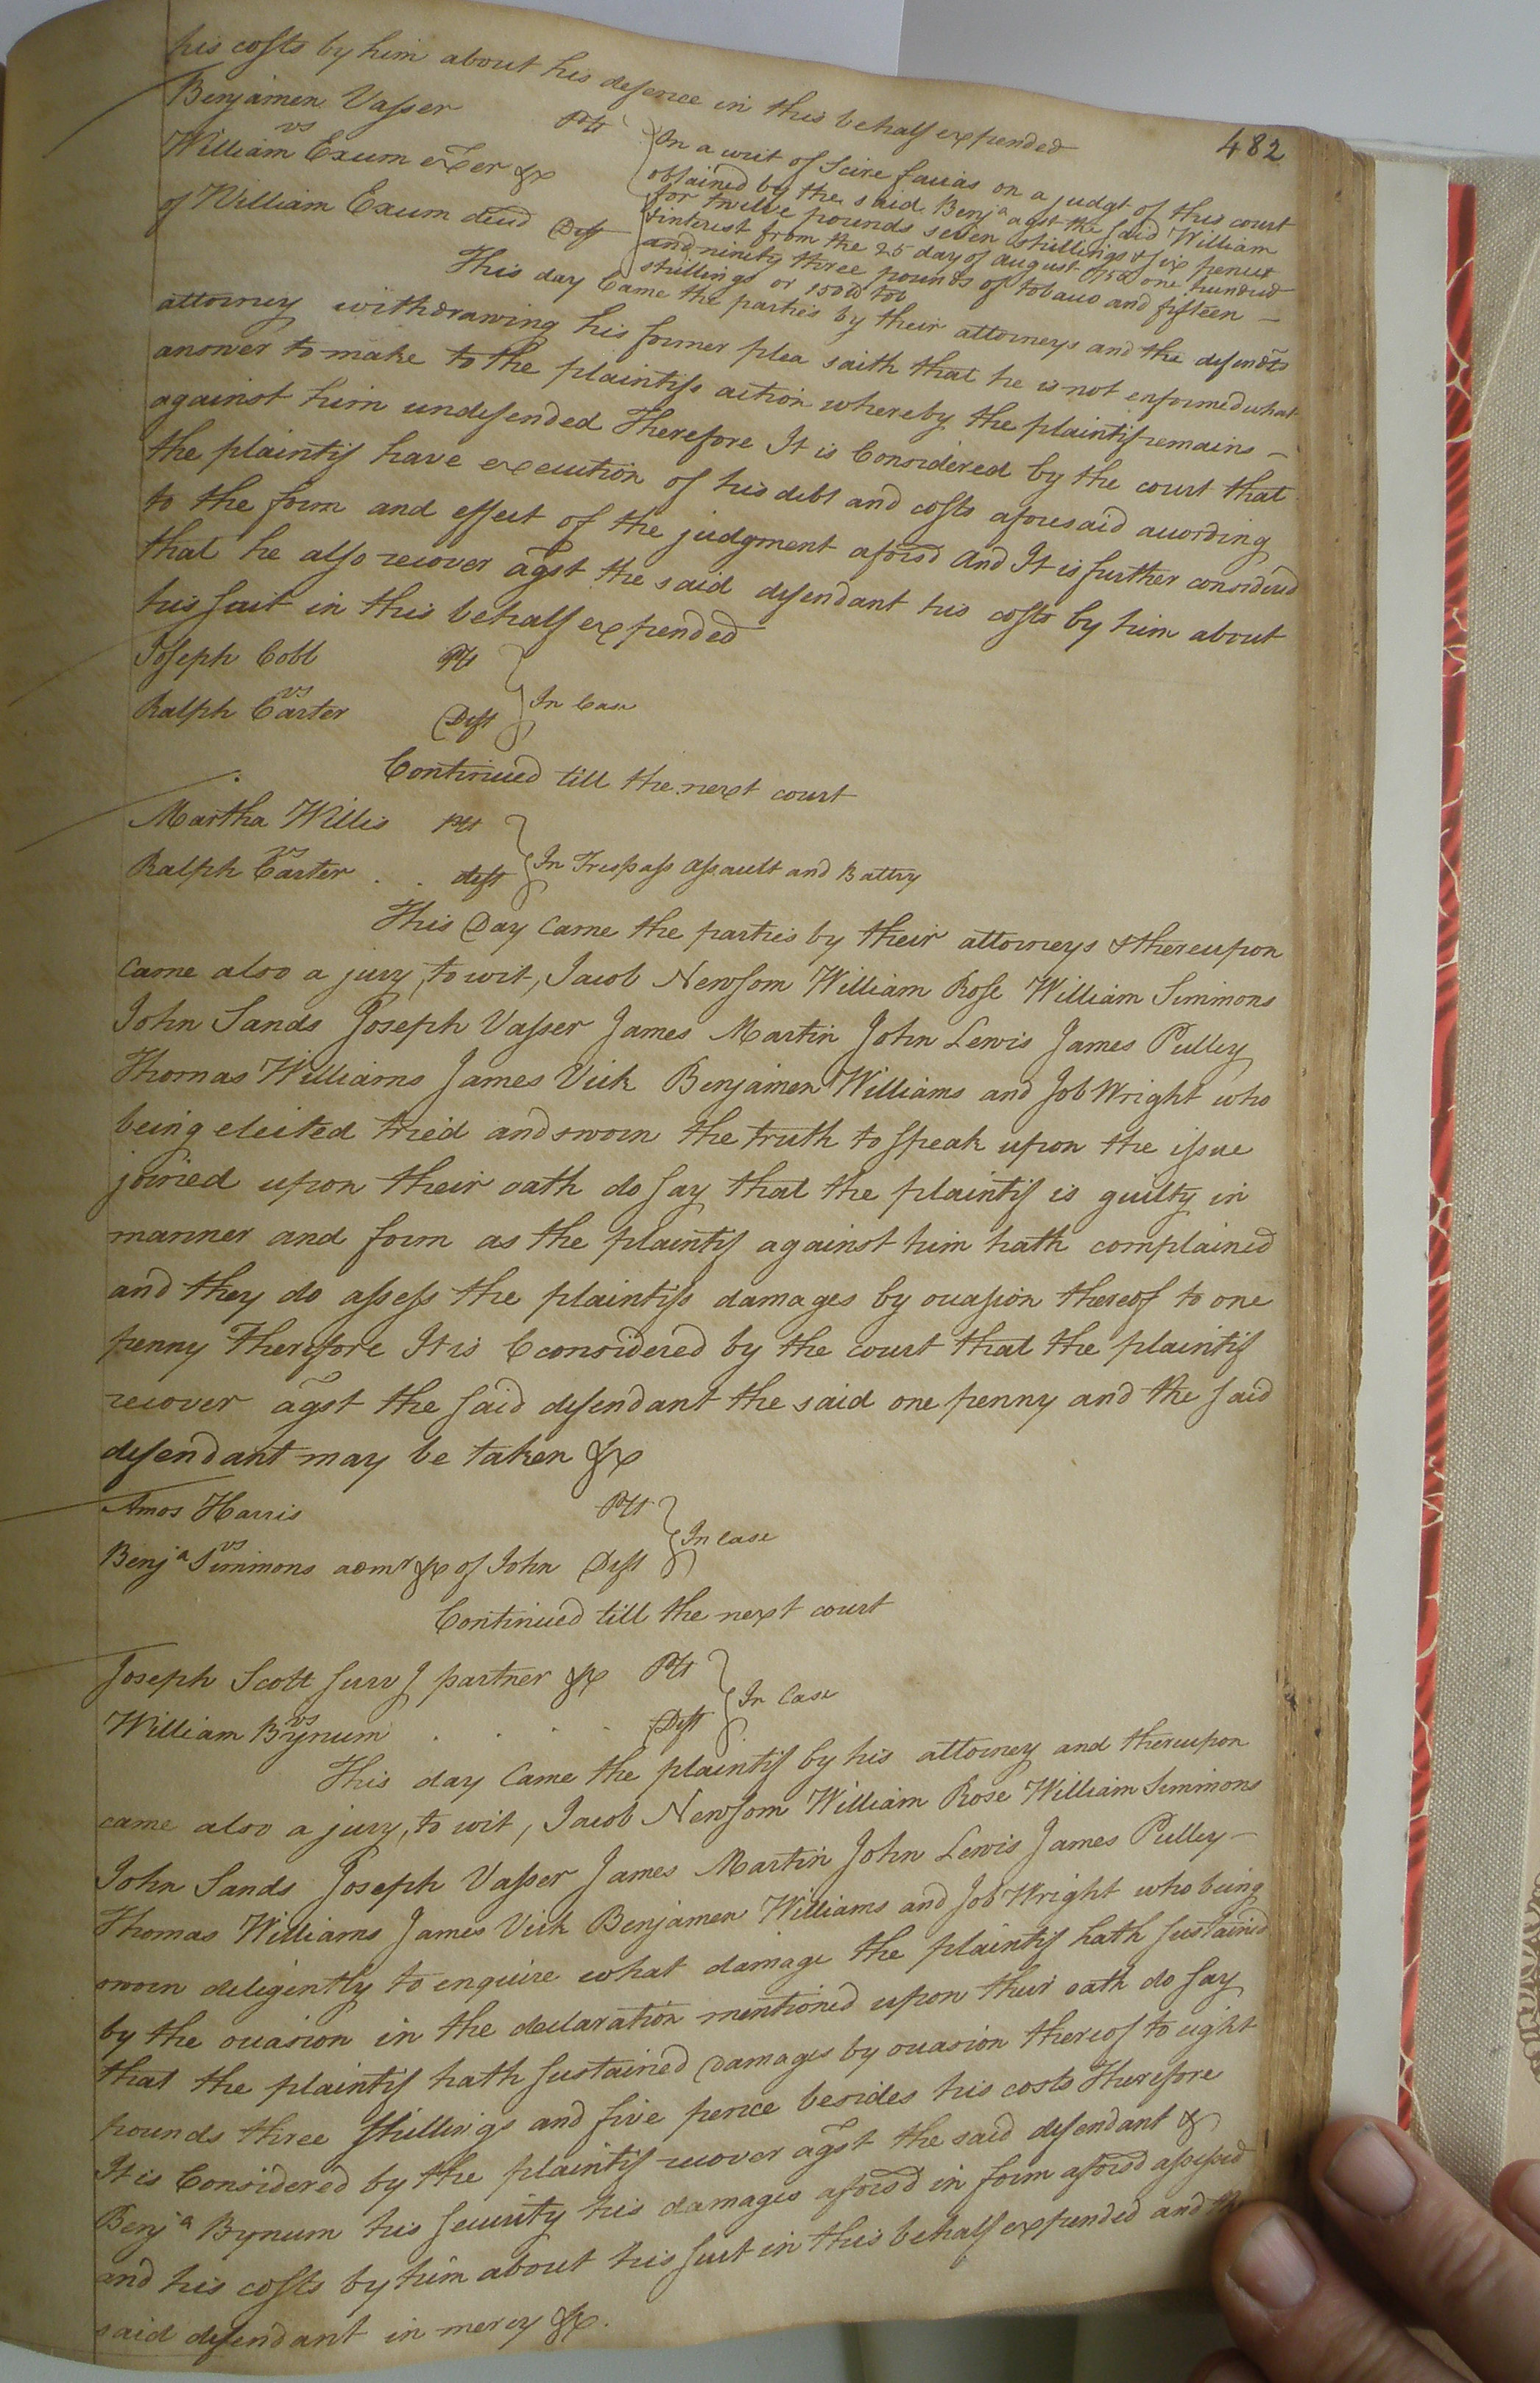 his costs by him about his defence in this behalf expended
482
Benjamen Vasser Plt
vs
William Exum exer &c
of William Exum decd Deft
In a writ of Scire facias on a judgt of this court
obtained by the said Benja agst the said William
for twelve pounds seven shillings & six pence
& interest from the 25 day of August one hundred
and ninety three pounds of tobacco and fifteen
shillings or 150 lb tob
This day Came the parties by their attorneys and the defendts
attorney withdrawing his former plea saith that he is not enformed what
answer to make to the plaintifs action whereby the plaintif remains
against him undefended Therefore It is Considered by the court that
the plaintif have execution of his debt and costs aforesaid according
to the form and effect of the judgment aforsd And It is further considered
that he also recover agst the said defendant his costs by him about
his suit in this behalf expended
Joseph Cobb Plt
vs
Ralph Carter Deft
In Case
Continued till the next court
Martha Willis Plt
vs
Ralph Carter . . deft
In Trespass Assault and Battry
This Day Came the parties by their attorneys & thereupon
Came also a jury, to wit, Jacob Newsom William Rose William Simmons
John Sands Joseph Vasser James Martin John Lewis James Pulley
Thomas Williams James Vick Benjamen Williams and Job Wright who
being elected tried and sworn the truth to speak upon the issue
joined upon their oath do say that the plaintif is guilty in
manner and form as the plaintif against him hath complained
and they do assess the plaintifs damages by occasion thereof to one
penny Therefore It is Cconsidered by the court that the plaintif
recover agst the said defendant the said one penny and the said
defendant may be taken &c
Amos Harris Plt
vs
Benja Simmons admr &c of John Deft
In Case
Continued till the next court
Joseph Scott surv g partner &c Plt
vs
William Bynum . . . . Deft
In Case
This day Came the plaintif by his attorney and thereupon
came also a jury, to wit, Jacob Newsom William Rose William Simmons
John Sands Joseph Vasser James Martin John Lewis James Pulley
Thomas Williams James Vick Benjamen Williams and Job Wright who being
sworn deligently to enquire what damage the plaintif hath sustained
by the ocasion in the declaration mentioned upon their oath do say
that the plaintif hath sustained Damages by ocasion thereof to eight
pounds three shillings and five pence besides his costs Therefore
It is Considered by the plaintif recover agst the said defendant &
Benja Bynum his security his damages aforsd in form aforsd assessed
and his costs by him about his suit in this behalf expended and the
said defendant in mercy &c.